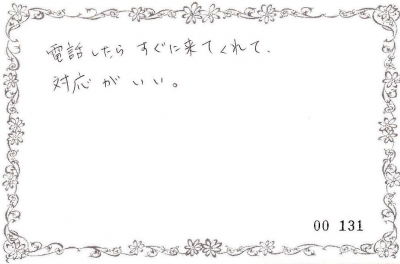 電話したら すぐに来てくれて、
対応がいい。
00 131